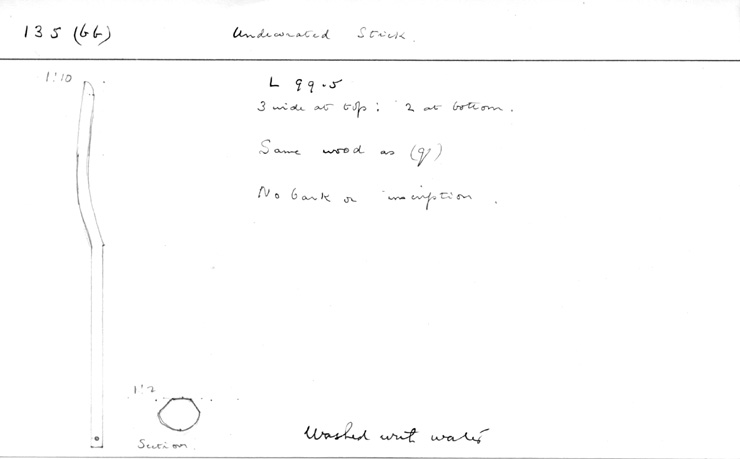 135 (bb) Undecorated Stick.
1:10
L 99.5
3 wide at top: 2 at bottom.
Same wood as (q)
No bark or inscription.
1:2
Section.
Washed with water